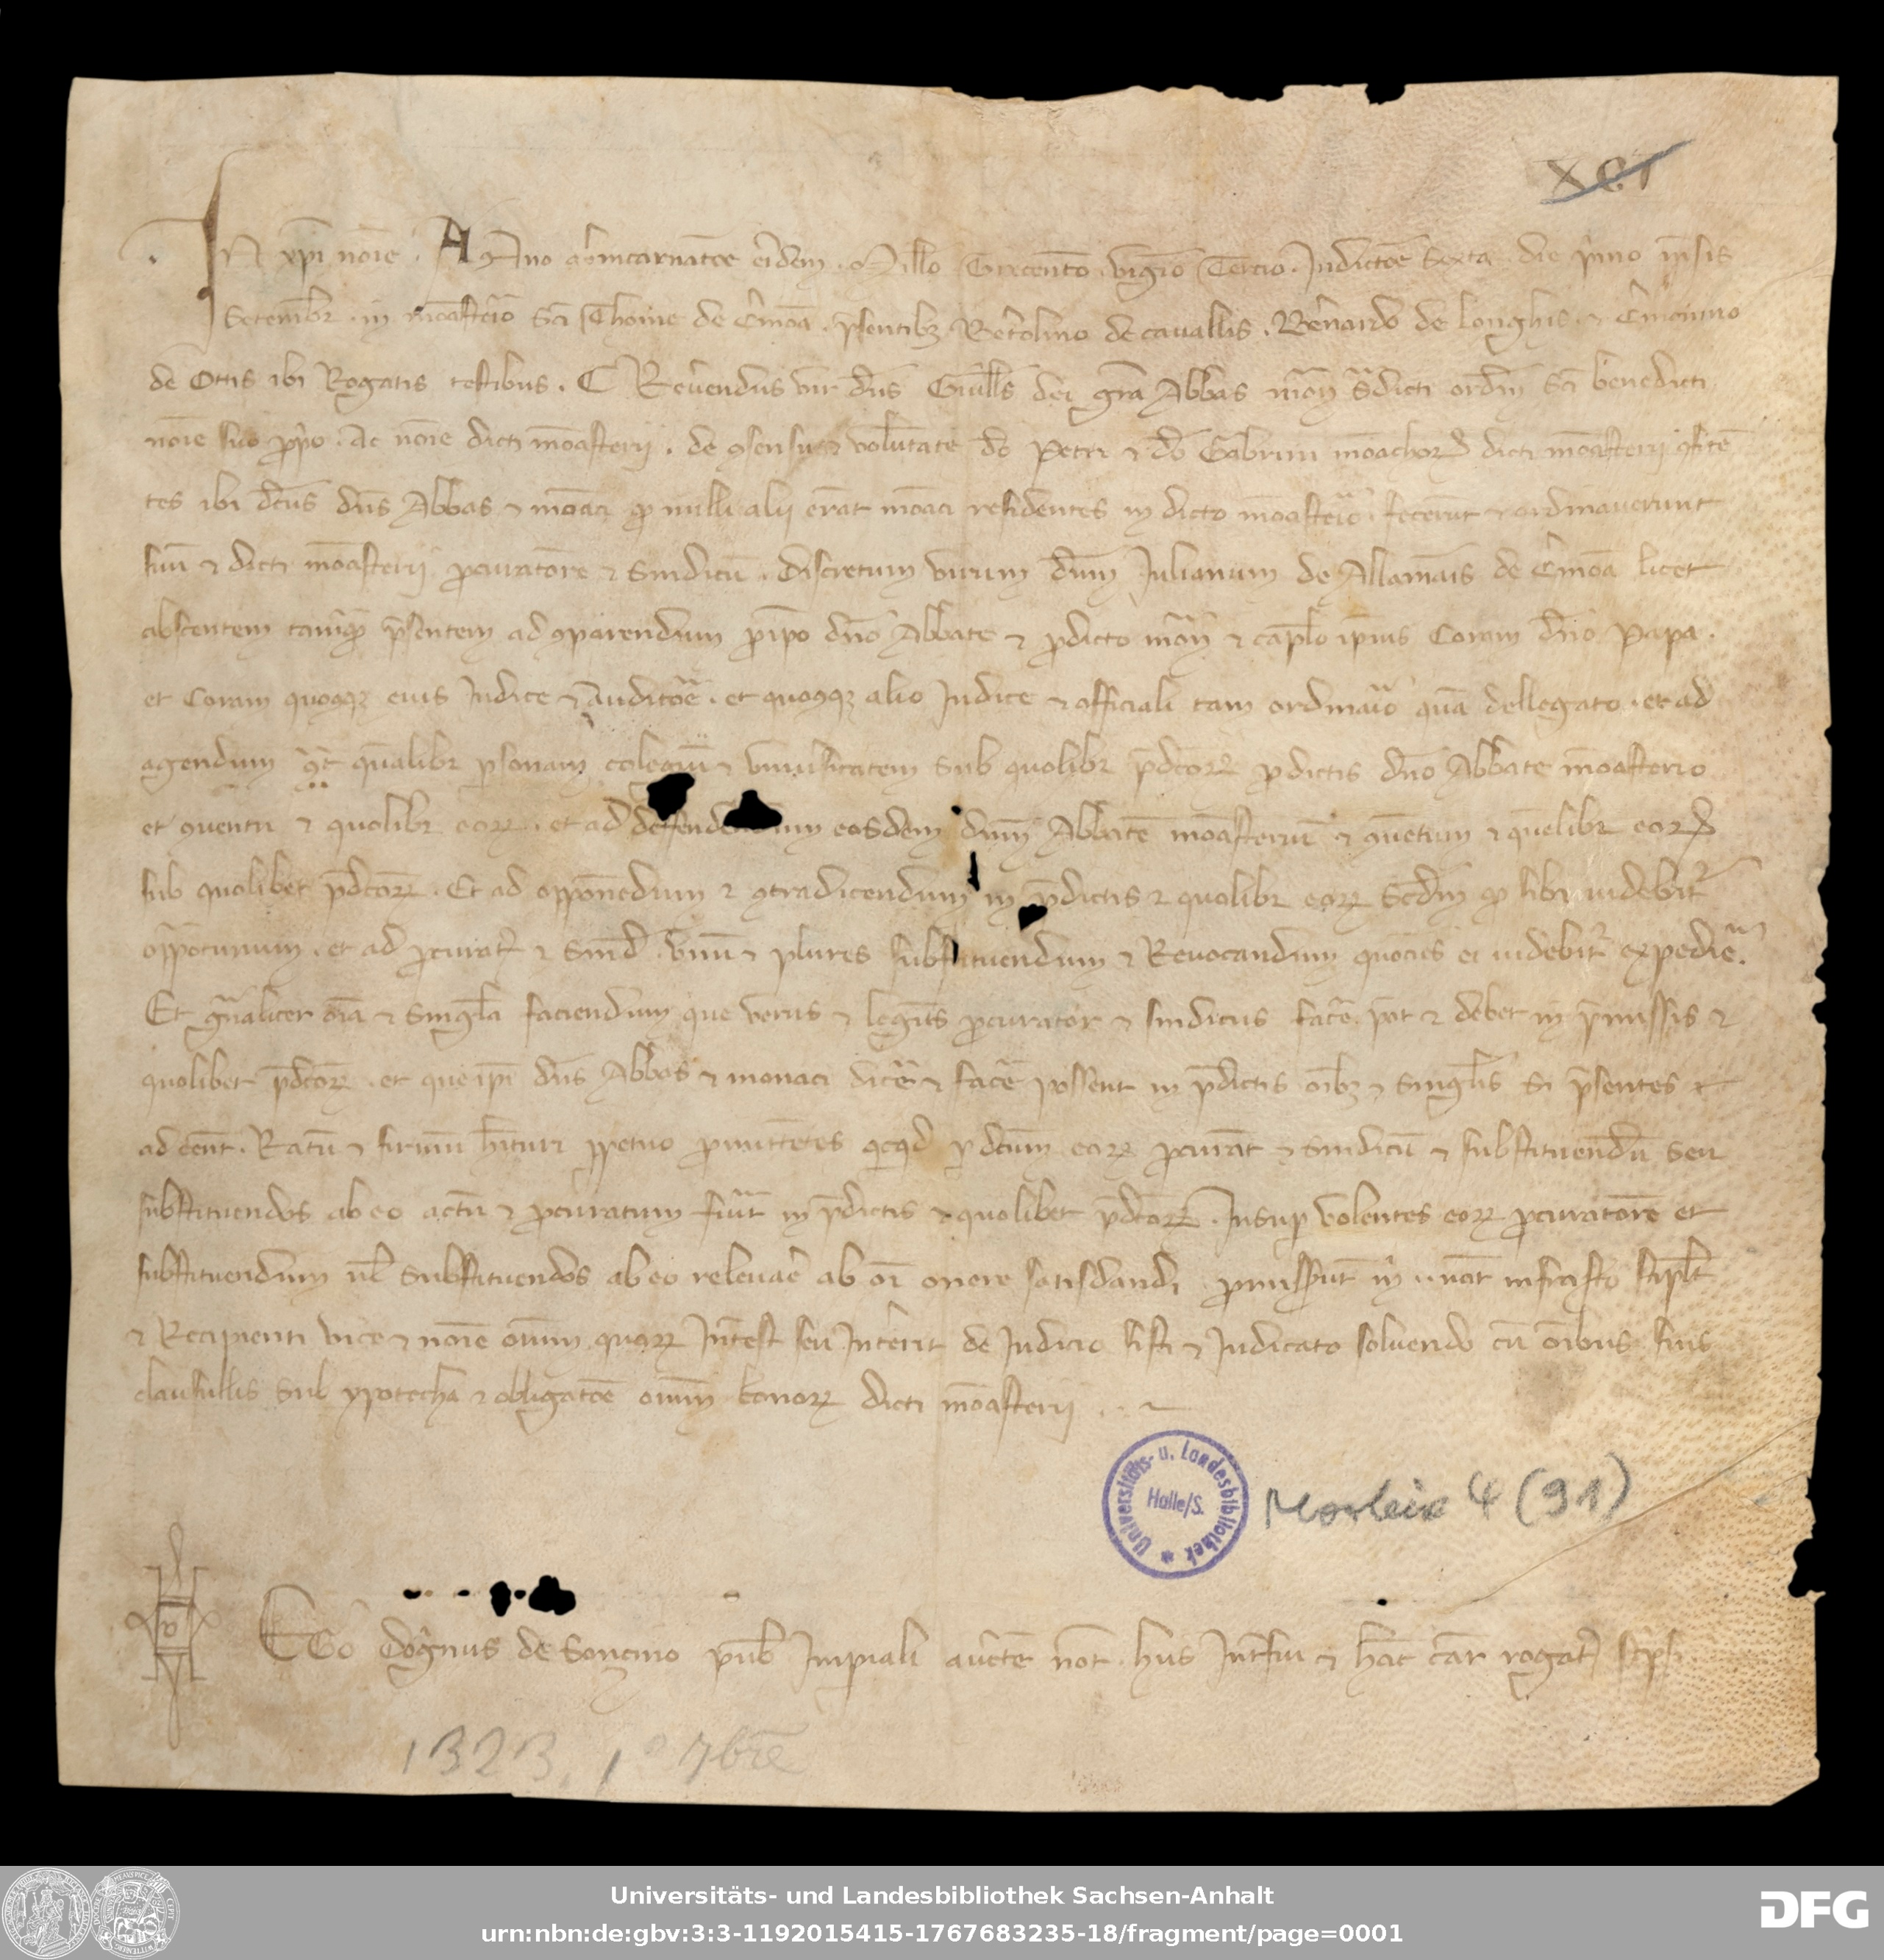 XCI
In xpi noīe . Anno ab incarnatōe eiusdem . Millo Trecento . vigēo Tercio . Indictōe Sexta . die primo mensis
Setembr . in monasterio Sci Thome de Cremona . presentibz Bertolino de cavallis . Bernardo de Longhis . et
de Ottis ibi Rogatis testibus . Reverendus vir dns Guills dei gra Abbas mon supradicti ordin Sci benedicti
noīe suo proprio . Ac noīe dicti mōasterii . de consensu et voluntate do Petri et do Gabrini mōachorum dicti mōasterii confiten
tes ibi dictus dns Abbas et mōaci quod nulli alii erant mōaci residentes in dicto mōasterio . fecerunt et ordinaverunt
suū et dicti mōasterij procuratorē et Sindicū . discretum virum dnum Julianum de Allamanis de Cremona licet
absentem tamquam presentem ad comparendum pro ipso dno Abbate et predicto mon et caplo ipsius Coram dno Papa .
et Coram quocumque eius Iudice et Auditore . et quocumque alio Iudice et officiali tam ordinario quam dellegato . et ad
agendum contra qualibet personam colegiū et vniversitatem Sub quolibet predictorum predictis dno Abbate mōasterio
et conventu et quolibet eorum . et ad deffendendum eosdem dnum Abbatē mōasteriū et conventum et quelibet eorum
sub quolibet predictorum . Et ad opponendum et contradicendum in predictis et quolibet eorum Scdm quod sibi videbitur
opportunum . et ad procurat et Sind . vnum et plures substituendum et Revocandum quociens ei videbitur expedire .
Et generaliter oīa et singula faciendum que verus et legitimus procurator et sindicus facere potest et debet in premissis et
quolibet predictorum . et que ipsi dns Abbas et monaci dicere et facere possent in predictis oībz et singulis si presentes
adessent . Ratū et firmum habituri perpetuo promittentes quicquid per dictum eorum procurat et sindicū et substituendū seu
substituendos ab eo actū et procuratum fuerit in predictis et quolibet predictorum . Insuper volentes eorum procuratorē et
substituendum vel substituendos ab eo relevare ab oī onere satisdandi . promiserunt mihi not infrascripto stipulanti
et Recipienti vice et noīe omnium quorum Interest seu Intererit de Iudicio sisti et Iudicato solvendo cū oībus suis
clausullis sub ypotecha et obligatōe omnium bonorum dicti mōasterii . .
Universitäts- u. Landesbibliothek
Halle/S.
Morbio 4 (91)
Ego de Soncino pub Imperiali auctē not . hiis Interfui et hanc cart rogatus scripsi
1323. 1° 7bre
Universitäts- und Landesbibliothek Sachsen-Anhalt
urn:nbn:de:gbv:3:3-1192015415-1767683235-18/fragment/page=0001
DFG